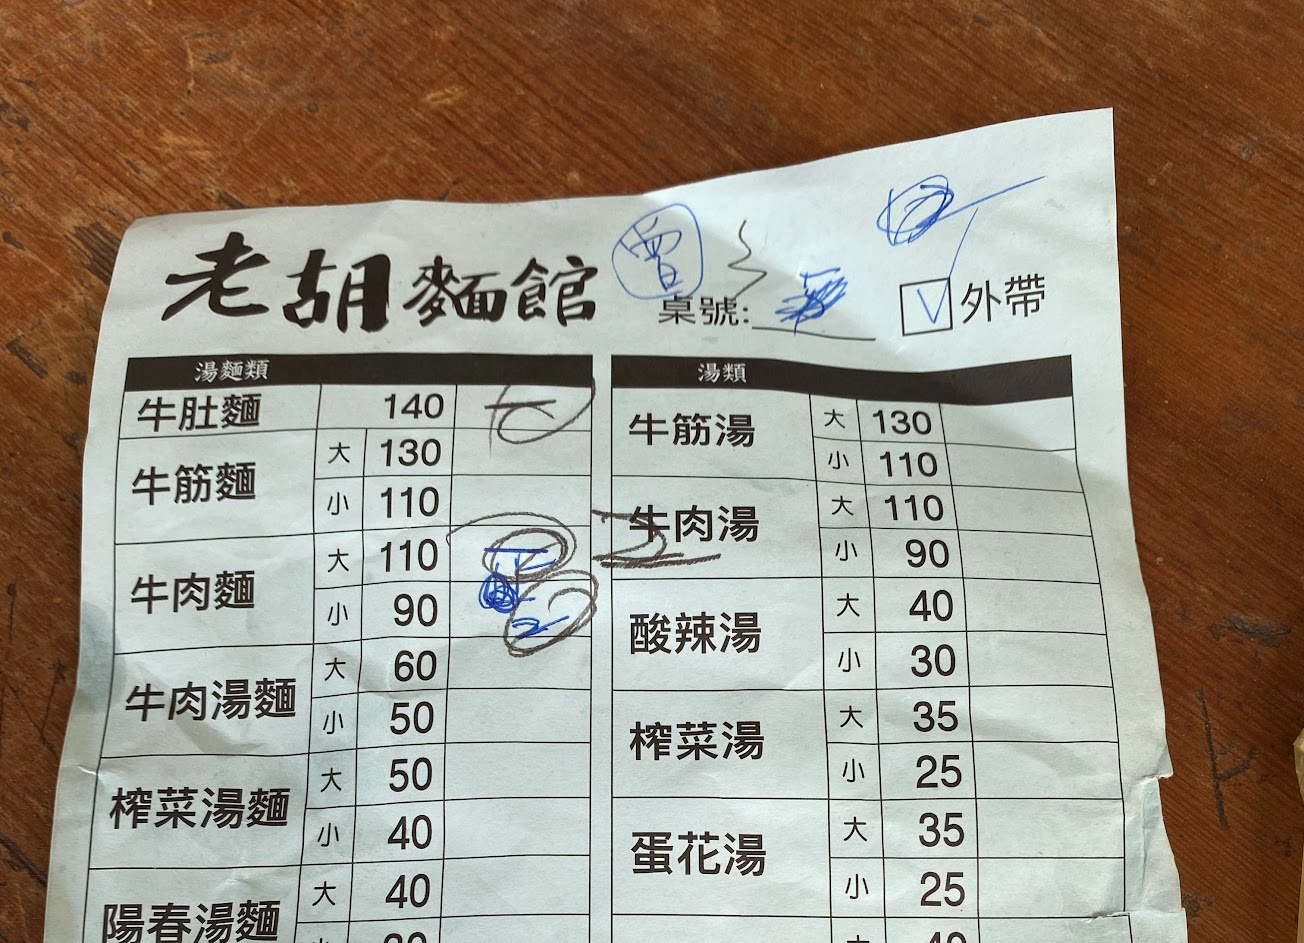 老胡麵館
曾
桌號:
V 外帶
湯麵類
牛肚麵 140
牛筋麵 大 130
小 110
牛肉麵 大 110
小 90
牛肉湯麵 大 60
小 50
榨菜湯麵 大 50
小 40
陽春湯麵 大 40
湯類
牛筋湯 大 130
小 110
牛肉湯 大 110
小 90
酸辣湯 大 40
小 30
榨菜湯 大 35
小 25
蛋花湯 大 35
小 25